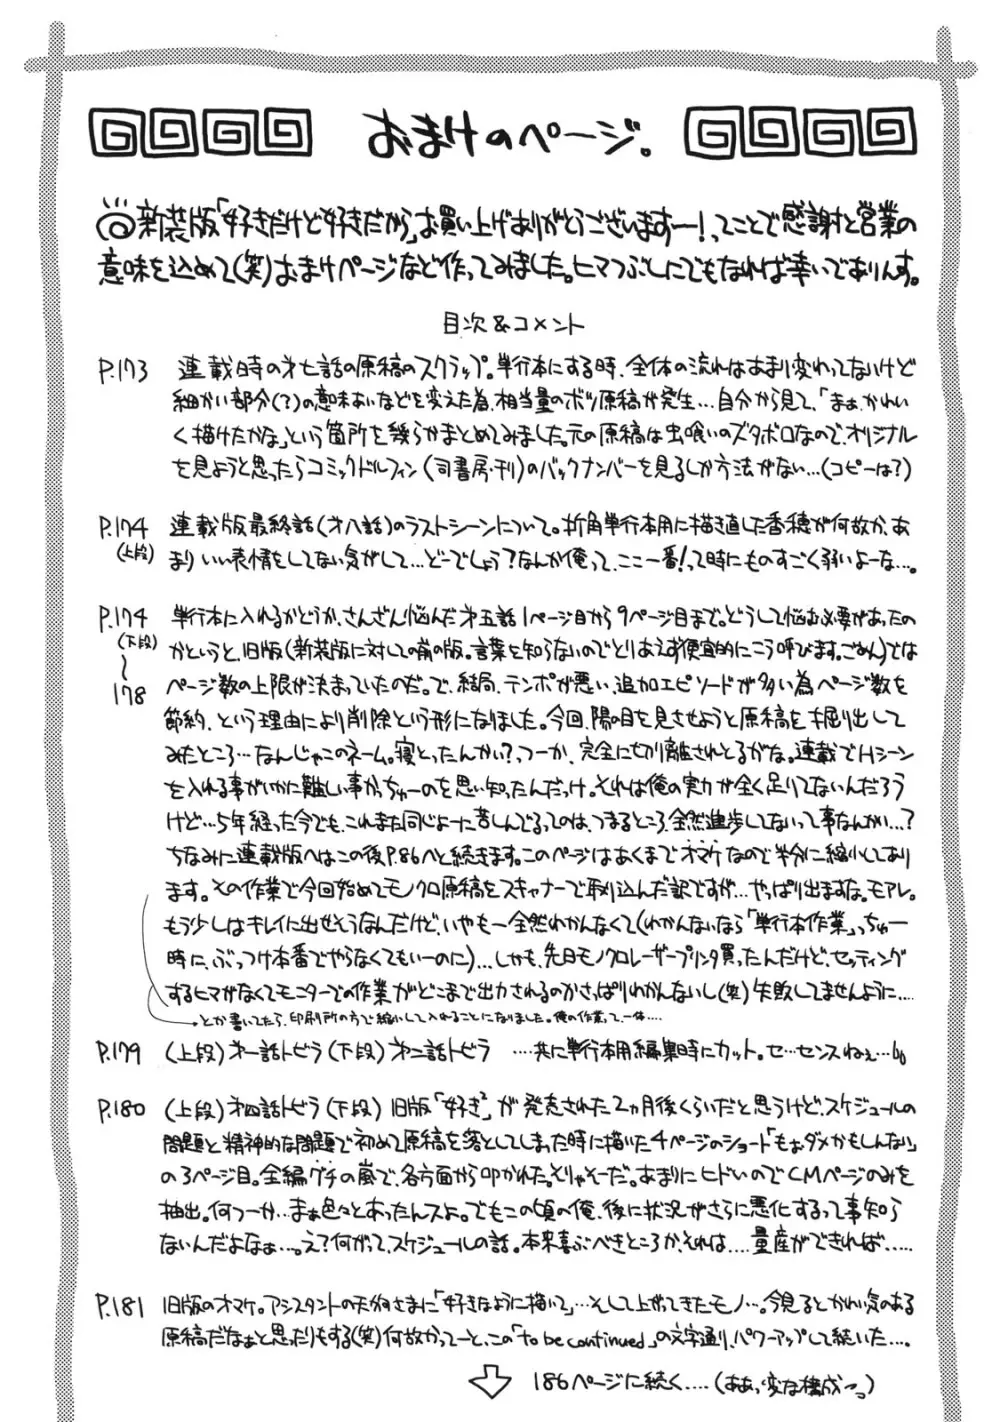 おまけのページ。
新装版「好きだけど好きだから」お買い上げありがとうございますー!ってことで感謝と営業の
意味を込めて(笑)おまけページなど作ってみました。ヒマつぶしにでもなれば幸いでありんす。
目次&コメント
P.173 連載時の才七話の原稿のスクラップ。単行本にする時、全体の流れはあまり変わってないけど
細かい部分(?)の意味あいなどを変えた為、相当量のボツ原稿が発生…自分から見て、「まぁ、かわい
く描けたかな」という箇所を幾らかまとめてみました。元の原稿は虫喰いのズタボロなので、オリジナル
を見ようと思ったらコミックドルフィン(司書房・刊)のバックナンバーを見るしか方法がない…(コピーは?)
P.174 連載版最終話(才八話)のラストシーンについて。折角単行本用に描き直した香穂が何故か、あ
(上段) まりいい表情をしてない気がして…どーでしょう?なんか俺って、ここ一番!って時にものすごく弱いよーな…。
P.174 単行本に入れるかどうか、さんざん悩んだ才五話1ページ目から9ページ目まで。どうして悩む必要があったの
(下段) かというと、旧版(新装版に対しての前の版。言葉を知らないのでとりあえず便宜的にこう呼びます。ごめん)では
〜
178 ページ数の上限が決まっていたのだ。で、結局、テンポが悪い、追加エピソードが多い為ページ数を
節約、という理由により削除という形になりました。今回、陽の目を見させようと原稿を掘り出して
みたところ…なんじゃこのネーム。寝とったんかい?、つーか、完全に切り離されとるがな。連載でHシーン
を入れる事がいかに難しい事かっちゅーのを思い知ったんだっけ。それは俺の実力が全く足りてないんだろう
けど…5年経った今でも、これまた同じよーに苦しんでるってのは、つまるところ、全然進歩してないって事なんかい…?
ちなみに連載版へはこの後P.86へと続きます。このページはあくまでオマケなので半分に縮小してあり
ます。その作業で今回始めてモノクロ原稿をスキャナーで取り込んだ訳ですが…やっぱり出ますな。モアレ。
もう少しはキレイに出せそうなんだけど、いやもー全然わかんなくて(わかんないなら「単行本作業」っちゅー
時に、ぶっつけ本番でやらなくてもいーのに)…しかも、先日モノクロレーザープリンタ買ったんだけど、セッティング
するヒマがなくてモニターでの作業がどこまで出力されるのかさっぱりわかんないし(笑)失敗してませんように….
とか書いてたら、印刷所の方で縮小して入れることになりました。俺の作業って、一体….
P.179 (上段)才一話トビラ(下段)才二話トビラ ….共に単行本用編集時にカット。セ…センスねぇ…
P.180 (上段)才四話トビラ(下段)旧版「好き²」が発売された2ヵ月後くらいだと思うけど、スケジュールの
問題と精神的な問題で初めて原稿を落としてしまった時に描いた4ページのショート「もぉダメかもしんない」
の3ページ目。全編グチの嵐で、各方面から叩かれた。そりゃそーだ。あまりにヒドいのでCMページのみを
抽出。何つーか…まぁ色々とあったんスよ。でもこの頃の俺、後に状況がさらに悪化するって事知ら
ないんだよなぁ…。え?何がって、スケジュールの話。本来喜ぶべきところか、それは….量産ができれば…..
P.181 旧版のオマケ。アシスタントの天狗さまに「好きなように描いて」…そして上がってきたモノ…。今見るとかわい気のある
原稿だなぁと思ったりもする(笑)何故かってーと、この「to be continued」の文字通り、パワーアップして続いた….
186ページに続く….(ああっ変な構成っっ)